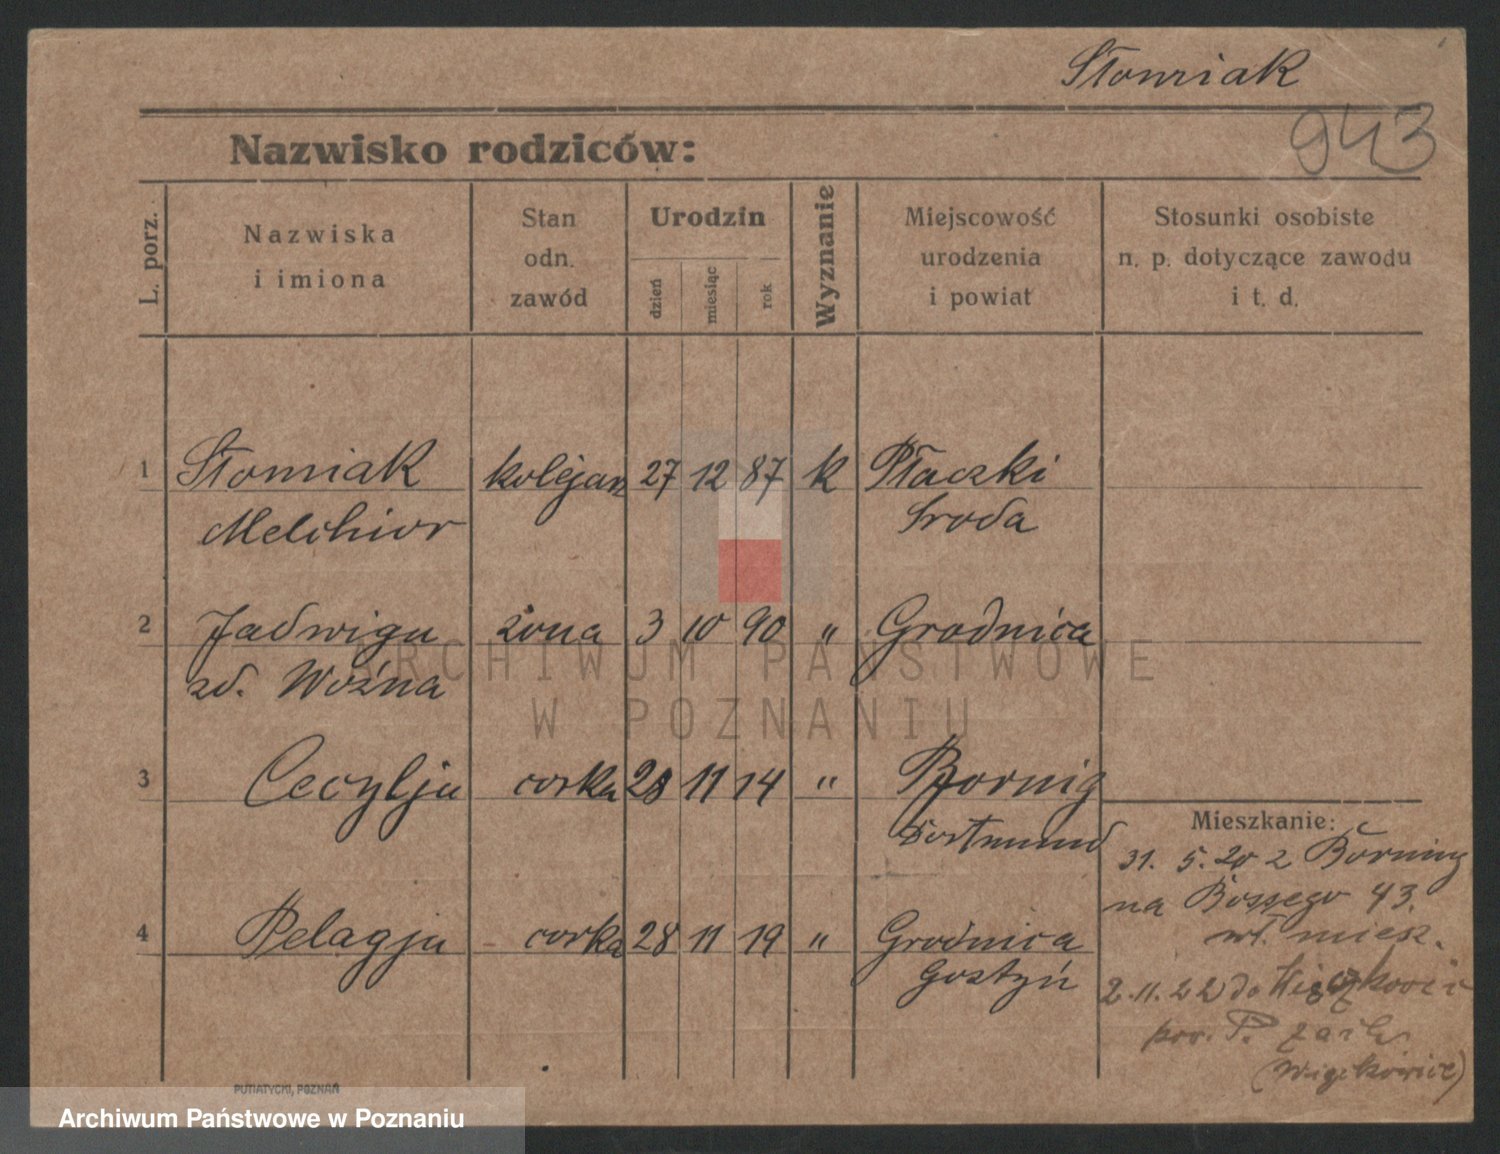 Słomiak
943
Nazwisko rodziców:
L. porz.
Nazwiska
i imiona
Stan
odn.
zawód
Urodzin
dzień
miesiąc
rok
Wyznanie
Miejscowość
urodzenia
i powiat
Stosunki osobiste
n. p. dotyczące zawodu
i t. d.
1 Słomiak kolejarz 27 12 87 k Płaczki
Melchior Sroda
2 Jadwiga żona 3 10 90 " Grodnica
zd. Woźna
3 Cecylja corka 28 11 14 " Bornig
Dortmund
4 Pelagja corka 28 11 19 " Grodnica
Gostyń
Mieszkanie:
31. 5. 20 z Börning
na Bossego 43.
wł. miesz.
2.11.22 do
pow. P.
(Więckowice)
ARCHIWUM PAŃSTWOWE
W POZNANIU
PUTIATYCKI, POZNAŃ
Archiwum Państwowe w Poznaniu